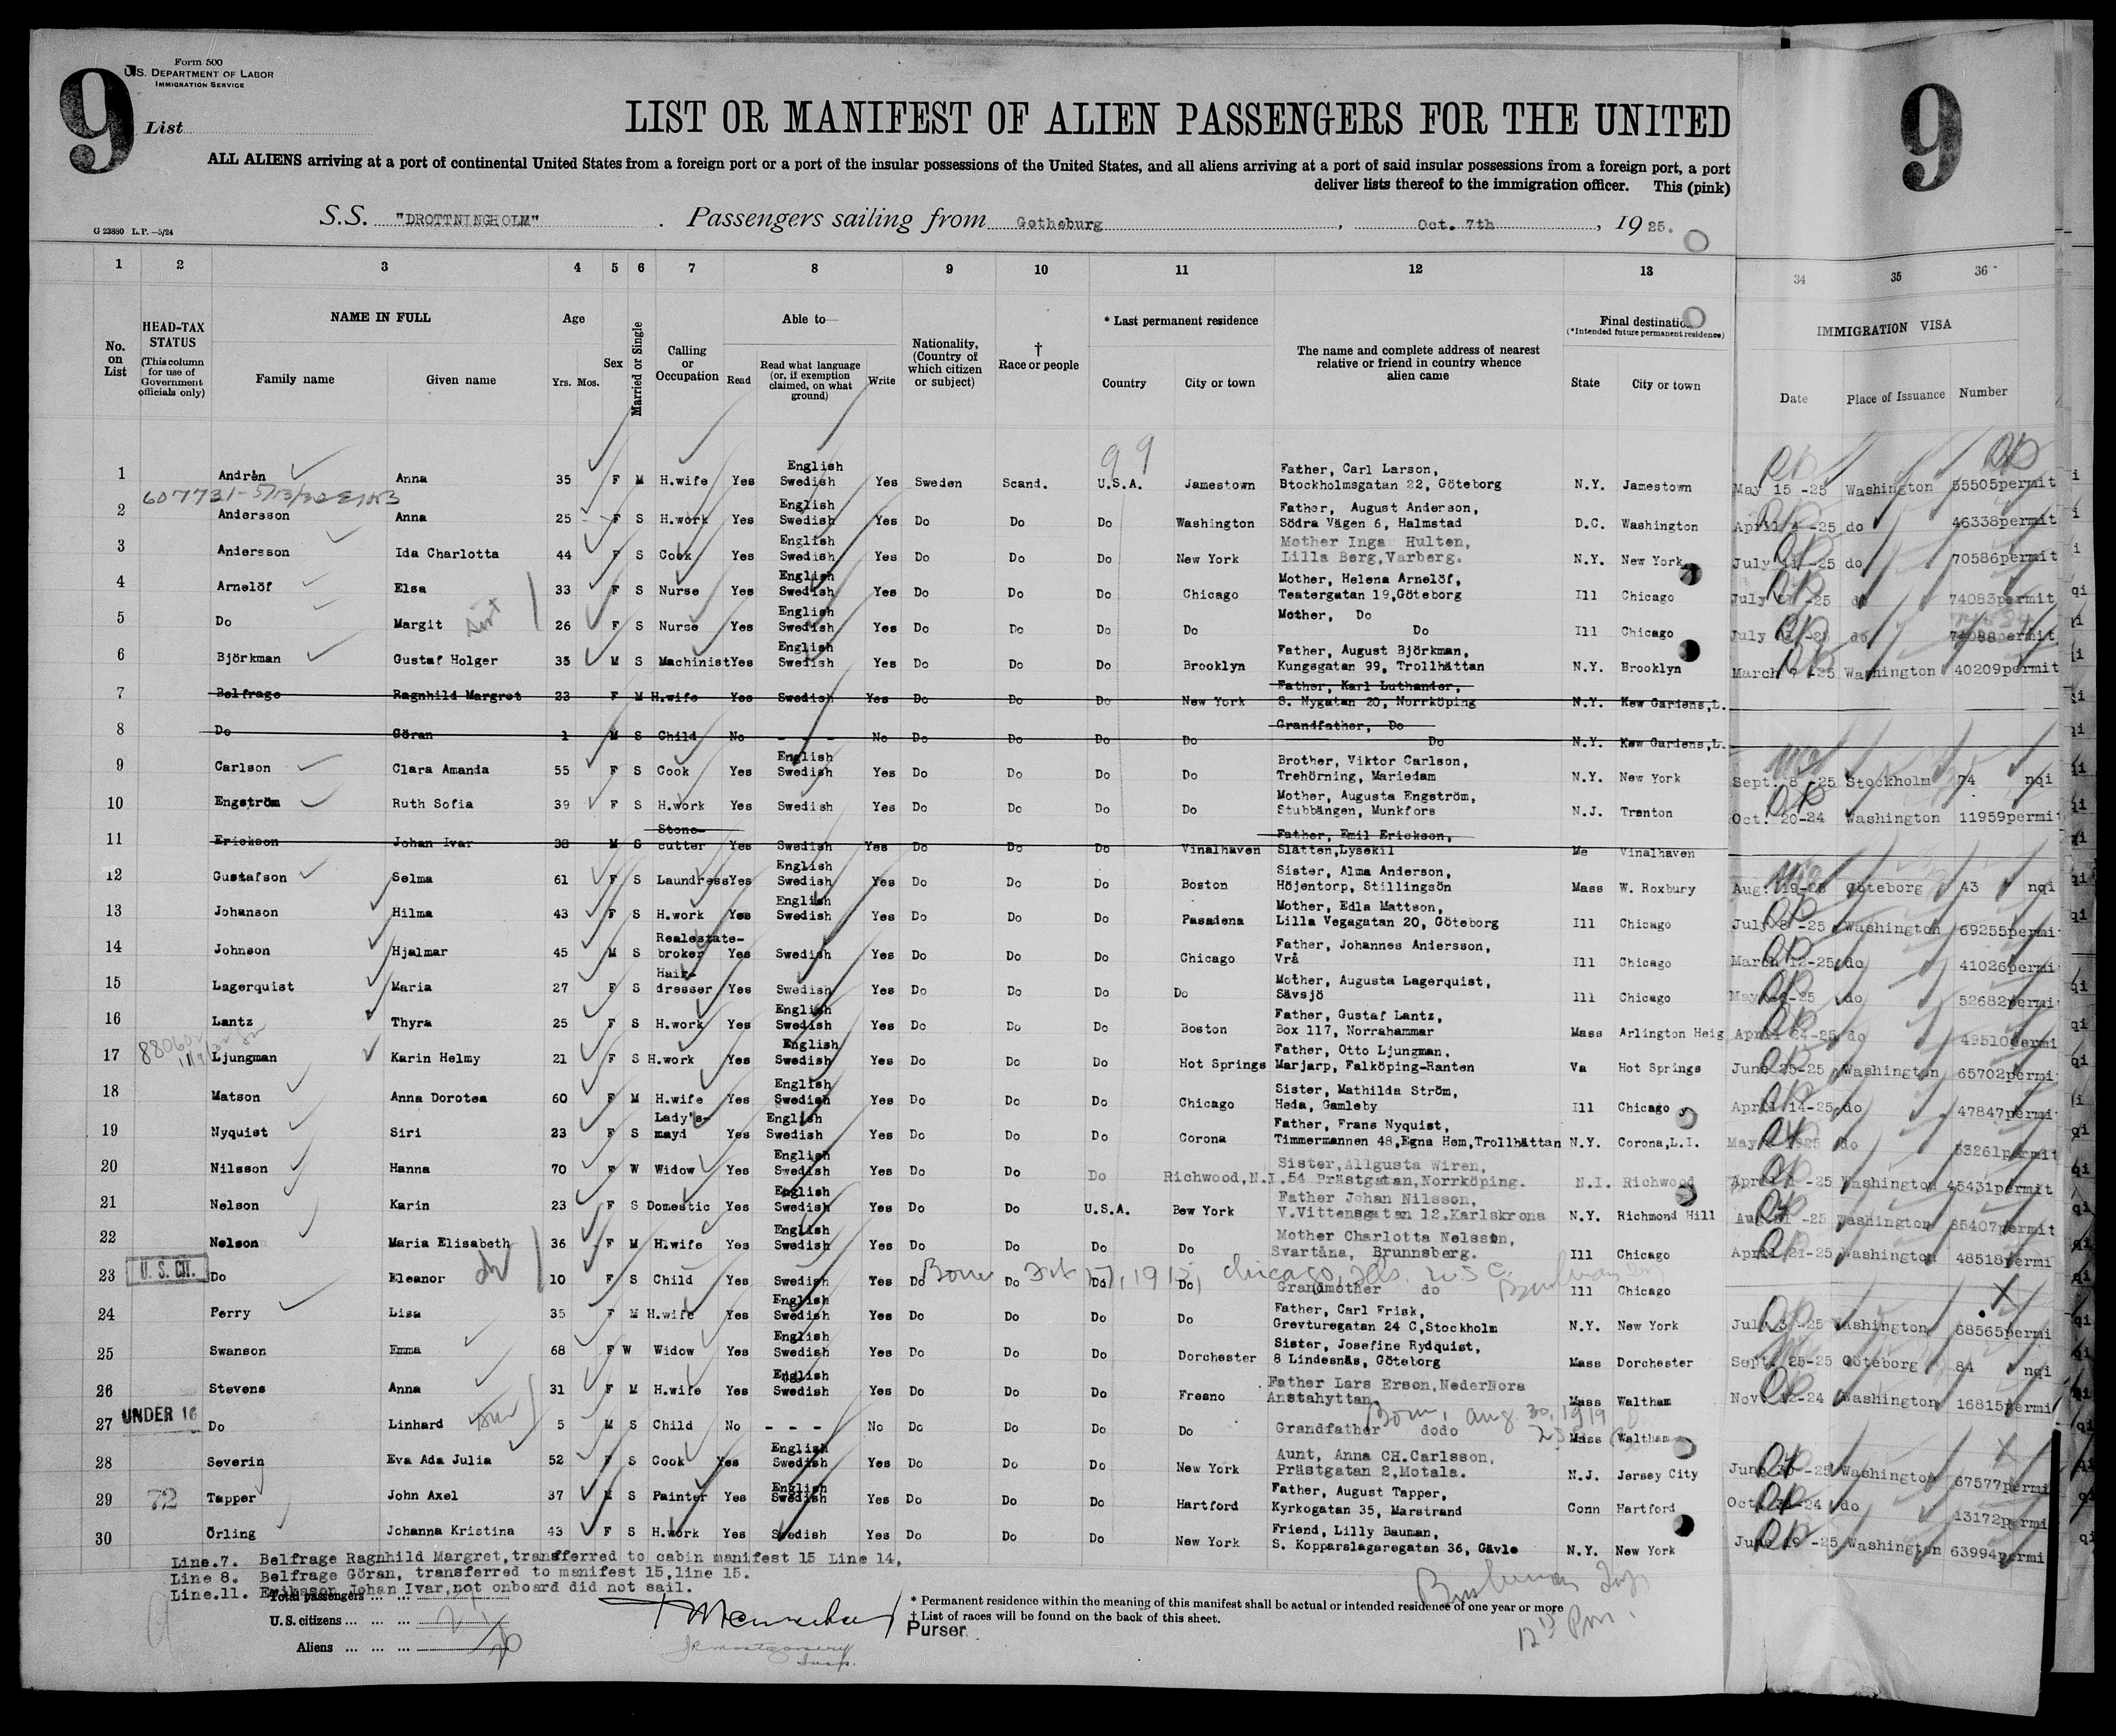 9
Form 500
U.S. DEPARTMENT OF LABOR
IMMIGRATION SERVICE
List
LIST OR MANIFEST OF ALIEN PASSENGERS FOR THE UNITED
9
ALL ALIENS arriving at a port of continental United States from a foreign port or a port of the insular possessions of the United States, and all aliens arriving at a port of said insular possessions from a foreign port, a port
deliver lists thereof to the immigration officer. This (pink)
S.S. "DROTTNINGHOLM" . Passengers sailing from Gotheburg , Oct. 7th , 1925.
G 23880 L. P.—5/24
1 2 3 4 5 6 7 8 9 10 11 12 13 34 35 36
No. on List
HEAD-TAX STATUS
(This column for use of Government officials only)
NAME IN FULL
Family name Given name
Age
Yrs. Mos.
Sex
Married or Single
Calling or Occupation
Able to
Read
Read what language (or, if exemption claimed, on what ground)
Write
Nationality, (Country of which citizen or subject)
† Race or people
* Last permanent residence
Country City or town
The name and complete address of nearest relative or friend in country whence alien came
Final destination
(*Intended future permanent residence)
State City or town
IMMIGRATION VISA
Date Place of Issuance Number
99
1 Andrén Anna 35 F M H.wife Yes English Swedish Yes Sweden Scand. U.S.A. Jamestown Father, Carl Larson, Btockholmsgatan 22, Göteborg N.Y. Jamestown May 15 -25 Washington 55505permit
2 Andersson Anna 25 F S H.work Yes English Swedish Yes Do Do Do Washington Father, August Anderson, Södra Vägen 6, Halmstad D.C. Washington April -25 do 46338permit
3 Andersson Ida Charlotta 44 F S Cook Yes English Swedish Yes Do Do Do New York Mother Inga Hulten, Lilla Berg,Varberg. N.Y. New York July -25 do 70586permit
4 Arnelöf Elsa 33 F S Nurse Yes English Swedish Yes Do Do Do Chicago Mother, Helena Arnelöf, Teatergatan 19,Göteborg Ill Chicago July -25 do 74083permit
5 Do Margit 26 F S Nurse Yes English Swedish Yes Do Do Do Do Mother, Do Do Ill Chicago July -25 do
6 Björkman Gustaf Holger 35 M S Machinist Yes English Swedish Yes Do Do Do Brooklyn Father, August Björkman, Kungsgatan 99, Trollhättan N.Y. Brooklyn March -25 Washington 40209permit
7 Belfrage Ragnhild Margret 23 F M H.wife Yes Swedish Yes Do Do Do New York Father, Karl Luthander, S. Nygatan 20, Norrköping N.Y. Kew Gardens,L.
8 Do Göran 1 M S Child No - - - No Do Do Do Do Grandfather, Do Do N.Y. Kew Gardens,L.
9 Carlson Clara Amanda 55 F S Cook Yes English Swedish Yes Do Do Do Do Brother, Viktor Carlson, Trehörning, Mariedam N.Y. New York Sept. 8 -25 Stockholm 74 nqi
10 Engström Ruth Sofia 39 F S H.work Yes Swedish Yes Do Do Do Do Mother, Augusta Engström, Stubbängen, Munkfors N.J. Trenton Oct. 20-24 Washington 11959permit
11 Erickson Johan Ivar 38 M S Stone-cutter Yes Swedish Yes Do Do Do Vinalhaven Father, Emil Erickson, Slätten,Lysekil Me Vinalhaven
12 Gustafson Selma 61 F S Laundress Yes English Swedish Yes Do Do Do Boston Sister, Alma Anderson, Höjentorp, Stillingsön Mass W. Roxbury Aug. 19-25 Göteborg 43 nqi
13 Johanson Hilma 43 F S H.work Yes English Swedish Yes Do Do Do Pasadena Mother, Edla Mattson, Lilla Vegagatan 20, Göteborg Ill Chicago July 8 -25 Washington 69255permi
14 Johnson Hjalmar 45 M S Realestate-broker Yes Swedish Yes Do Do Do Chicago Father, Johannes Andersson, Vrå Ill Chicago March 12-25 do 41026permi
15 Lagerquist Maria 27 F S Hair-dresser Yes Swedish Yes Do Do Do Do Mother, Augusta Lagerquist, Sävsjö Ill Chicago May -25 do 52682permi
16 Lantz Thyra 25 F S H.work Yes English Swedish Yes Do Do Do Boston Father, Gustaf Lantz, Box 117, Norrahammar Mass Arlington Heig April 24-25 do 49510permi
17 Ljungman Karin Helmy 21 F S H.work Yes English Swedish Yes Do Do Do Hot Springs Father, Otto Ljungman. Marjarp, Falköping-Ranten Va Hot Springs June 25-25 Washington 65702permi
18 Matson Anna Dorotea 60 F M H.wife Yes English Swedish Yes Do Do Do Chicago Sister, Mathilda Ström, Heda, Gamleby Ill Chicago April 14-25 do 47847permi
19 Nyquist Siri 23 F S Lady's-mayd Yes English Swedish Yes Do Do Do Corona Father, Frans Nyquist, Timmermannen 48,Egna Hem,Trollhättan N.Y. Corona,L.I. May do 53261permit
20 Nilsson Hanna 70 F W Widow Yes English Swedish Yes Do Do Do Richwood,N.I. Sister,Allgusta Wiren, 54 Prästgatan,Norrköping. N.I. Richwood April -25 Washington 45431permit
21 Nelson Karin 23 F S Domestic Yes English Swedish Yes Do Do U.S.A. Bew York Father Johan Nilsson, V.Vittensgatan 12,Karlskrona N.Y. Richmond Hill Aug -25 Washington 85407permit
22 Nelson Maria Elisabeth 36 F M H.wife Yes English Swedish Yes Do Do Do Do Mother Charlotta Nelsson, Svartåna, Brunnsberg. Ill Chicago April 21-25 Washington 48518permit
U. S. CIT.
23 Do Eleanor 10 F S Child Yes Swedish Yes Do Do Do Do Grandmother do Ill Chicago
24 Perry Lisa 35 F M H.wife Yes English Swedish Yes Do Do Do Do Father, Carl Frisk, Grevturegatan 24 C,Stockholm N.Y. New York July -25 Washington 68565permi
25 Swanson Emma 68 F W Widow Yes English Swedish Yes Do Do Do Dorchester Sister, Josefine Rydquist, 8 Lindesnäs, Göteborg Mass Dorchester Sept. 25-25 Göteborg 84 nqi
26 Stevens Anna 31 F M H.wife Yes English Swedish Yes Do Do Do Fresno Father Lars Erson,NederNora Anstahyttan. Mass Waltham Nov. 12-24 Washington 16815permi
UNDER 16
Born, Aug. 30, 1919
27 Do Linhard 5 M S Child No - - - No Do Do Do Do Grandfather dodo Mass Waltham
28 Severin Eva Ada Julia 52 F S Cook Yes English Swedish Yes Do Do Do New York Aunt, Anna CH.Carlsson, Prästgatan 2,Motala. N.J. Jersey City June 30 -25 Washington 67577permi
29 72 Tapper John Axel 37 M S Painter Yes English Swedish Yes Do Do Do Hartford Father, August Tapper, Kyrkogatan 35, Marstrand Conn Hartford Oct. -24 do 13172permi
30 Örling Johanna Kristina 43 F S H.work Yes Swedish Yes Do Do Do New York Friend, Lilly Bauman, S. Kopparslagaregatan 36, Gävle N.Y. New York June 19 -25 Washington 63994permi
Line.7. Belfrage Ragnhild Margret,transferred to cabin manifest 15 Line 14,
Line 8. Belfrage Göran, transferred to manifest 15,line 15.
Line.11. Eriksson Johan Ivar,not onboard did not sail.
Total passengers
U.S. citizens
Aliens
Purser.
* Permanent residence within the meaning of this manifest shall be actual or intended residence of one year or more
† List of races will be found on the back of this sheet.